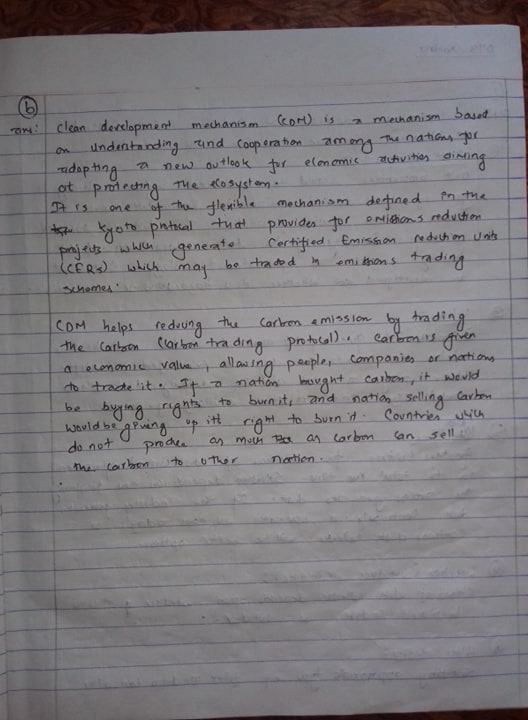 (b)
ans: Clean development mechanism (CDM) is a mechanism based
on understanding and cooperation among the nations for
adopting a new outlook for economic activities aiming
at protecting the ecosystem.
It is one of the flexible mechanism defined in the
Kyoto protocal that provides for emissions reduction
projects which generate Certified Emission reduction Units
(CERs) which may be traded in emissions trading
schemes.
CDM helps reducing the Carbon emission by trading
the Carbon (Carbon trading protocol). Carbon is given
a economic value, allowing people, companies or nations
to trade it. If a nation bought carbon, it would
be buying rights to burn it, and nation selling Carbon
would be giving up its right to burn it. Countries which
do not produce as much as carbon can sell
the carbon to other nation.